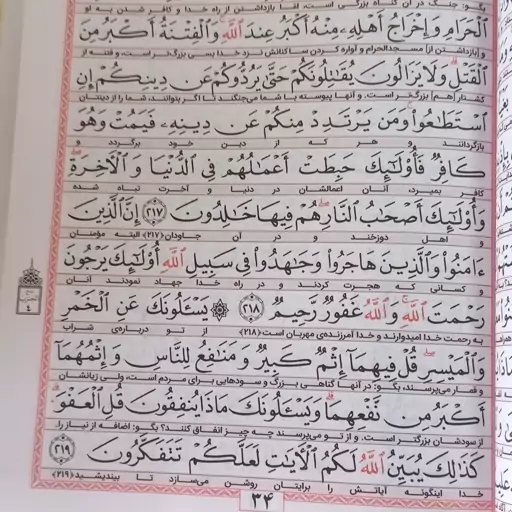 بگو: جنگ در آن گناه بزرگی است، اما بازداشتن از راه خدا و کافر شدن به او
الْحَرَامِ وَإِخْرَاجُ أَهْلِهِ مِنْهُ أَكْبَرُ عِندَ اللَّهِ وَالْفِتْنَةُ أَكْبَرُ مِنَ
و (بازداشتن از) مسجدالحرام و آواره کردن ساکنانش نزد خدا بسی بزرگ‌تر است، و فتنه از
الْقَتْلِ وَلَا يَزَالُونَ يُقَاتِلُونَكُمْ حَتَّىٰ يَرُدُّوكُمْ عَن دِينِكُمْ إِنِ
کشتار (هم) بزرگ‌تر است. و آنها پیوسته با شما می‌جنگند تا اگر بتوانند، شما را از دینتان
اسْتَطَاعُوا وَمَن يَرْتَدِدْ مِنكُمْ عَن دِينِهِ فَيَمُتْ وَهُوَ
بازگردانند و هر که از دین خود برگردد و
كَافِرٌ فَأُولَٰئِكَ حَبِطَتْ أَعْمَالُهُمْ فِي الدُّنْيَا وَالْآخِرَةِ
کافر بمیرد، آنان اعمالشان در دنیا و آخرت تباه شده
وَأُولَٰئِكَ أَصْحَابُ النَّارِ هُمْ فِيهَا خَالِدُونَ ﴿٢١٧﴾ إِنَّ الَّذِينَ
و اهل دوزخند و در آن جاودان﴿۲۱۷﴾ البته مؤمنان
ءَامَنُوا وَالَّذِينَ هَاجَرُوا وَجَاهَدُوا فِي سَبِيلِ اللَّهِ أُولَٰئِكَ يَرْجُونَ
و کسانی که هجرت کردند و در راه خدا جهاد نمودند آنان
رَحْمَتَ اللَّهِ وَاللَّهُ غَفُورٌ رَّحِيمٌ ﴿٢١٨﴾ ۞ يَسْـَٔلُونَكَ عَنِ الْخَمْرِ
به رحمت خدا امیدوارند و خدا آمرزنده‌ی مهربان است﴿۲۱۸﴾ از تو درباره‌ی شراب
وَالْمَيْسِرِ قُلْ فِيهِمَا إِثْمٌ كَبِيرٌ وَمَنَافِعُ لِلنَّاسِ وَإِثْمُهُمَا
و قمار می‌پرسند، بگو: در آنها گناهی بزرگ و سودهایی برای مردم است، ولی زیانشان
أَكْبَرُ مِن نَّفْعِهِمَا وَيَسْـَٔلُونَكَ مَاذَا يُنفِقُونَ قُلِ الْعَفْوَ
از سودشان بزرگتر است. و از تو می‌پرسند چه چیز انفاق کنند؟ بگو: اضافه از نیاز را.
كَذَٰلِكَ يُبَيِّنُ اللَّهُ لَكُمُ الْآيَاتِ لَعَلَّكُمْ تَتَفَكَّرُونَ ﴿٢١٩﴾
خدا اینگونه آیاتش را برایتان روشن می‌سازد تا بیندیشید﴿۲۱۹﴾
٣٤